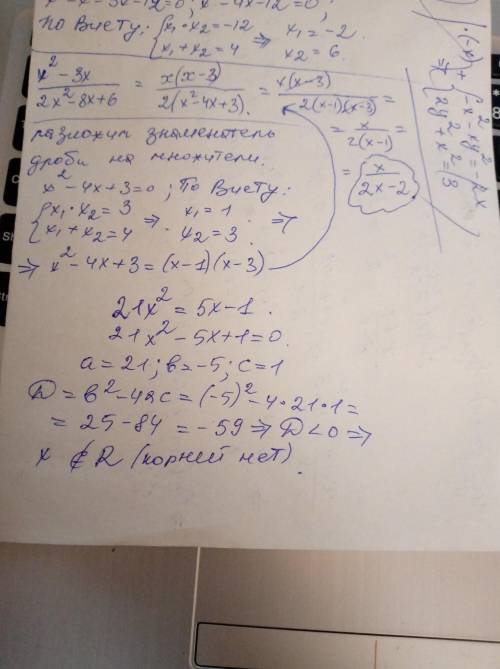 x² - x - 3x - 12 = 0; x² - 4x - 12 = 0;
По Виету: {x₁ · x₂ = -12 ⇒ x₁ = -2
x₁ + x₂ = 4 x₂ = 6.
(x² - 3x)/(2x² - 8x + 6) = x(x - 3)/(2(x² - 4x + 3)) = x(x - 3)/(2(x - 1)(x - 3)) =
= x/(2(x - 1)) =
= x/(2x - 2)
разложим знаменатель
дроби на множители.
x² - 4x + 3 = 0; По Виету:
{x₁ · x₂ = 3 ⇒ x₁ = 1 ⇒
x₁ + x₂ = 4 x₂ = 3
⇒ x² - 4x + 3 = (x - 1)(x - 3)
21x² = 5x - 1.
21x² - 5x + 1 = 0.
a = 21; b = -5; c = 1
D = b² - 4ac = (-5)² - 4 · 21 · 1 =
= 25 - 84 = -59 ⇒ D < 0 ⇒
x ∉ R (корней нет).